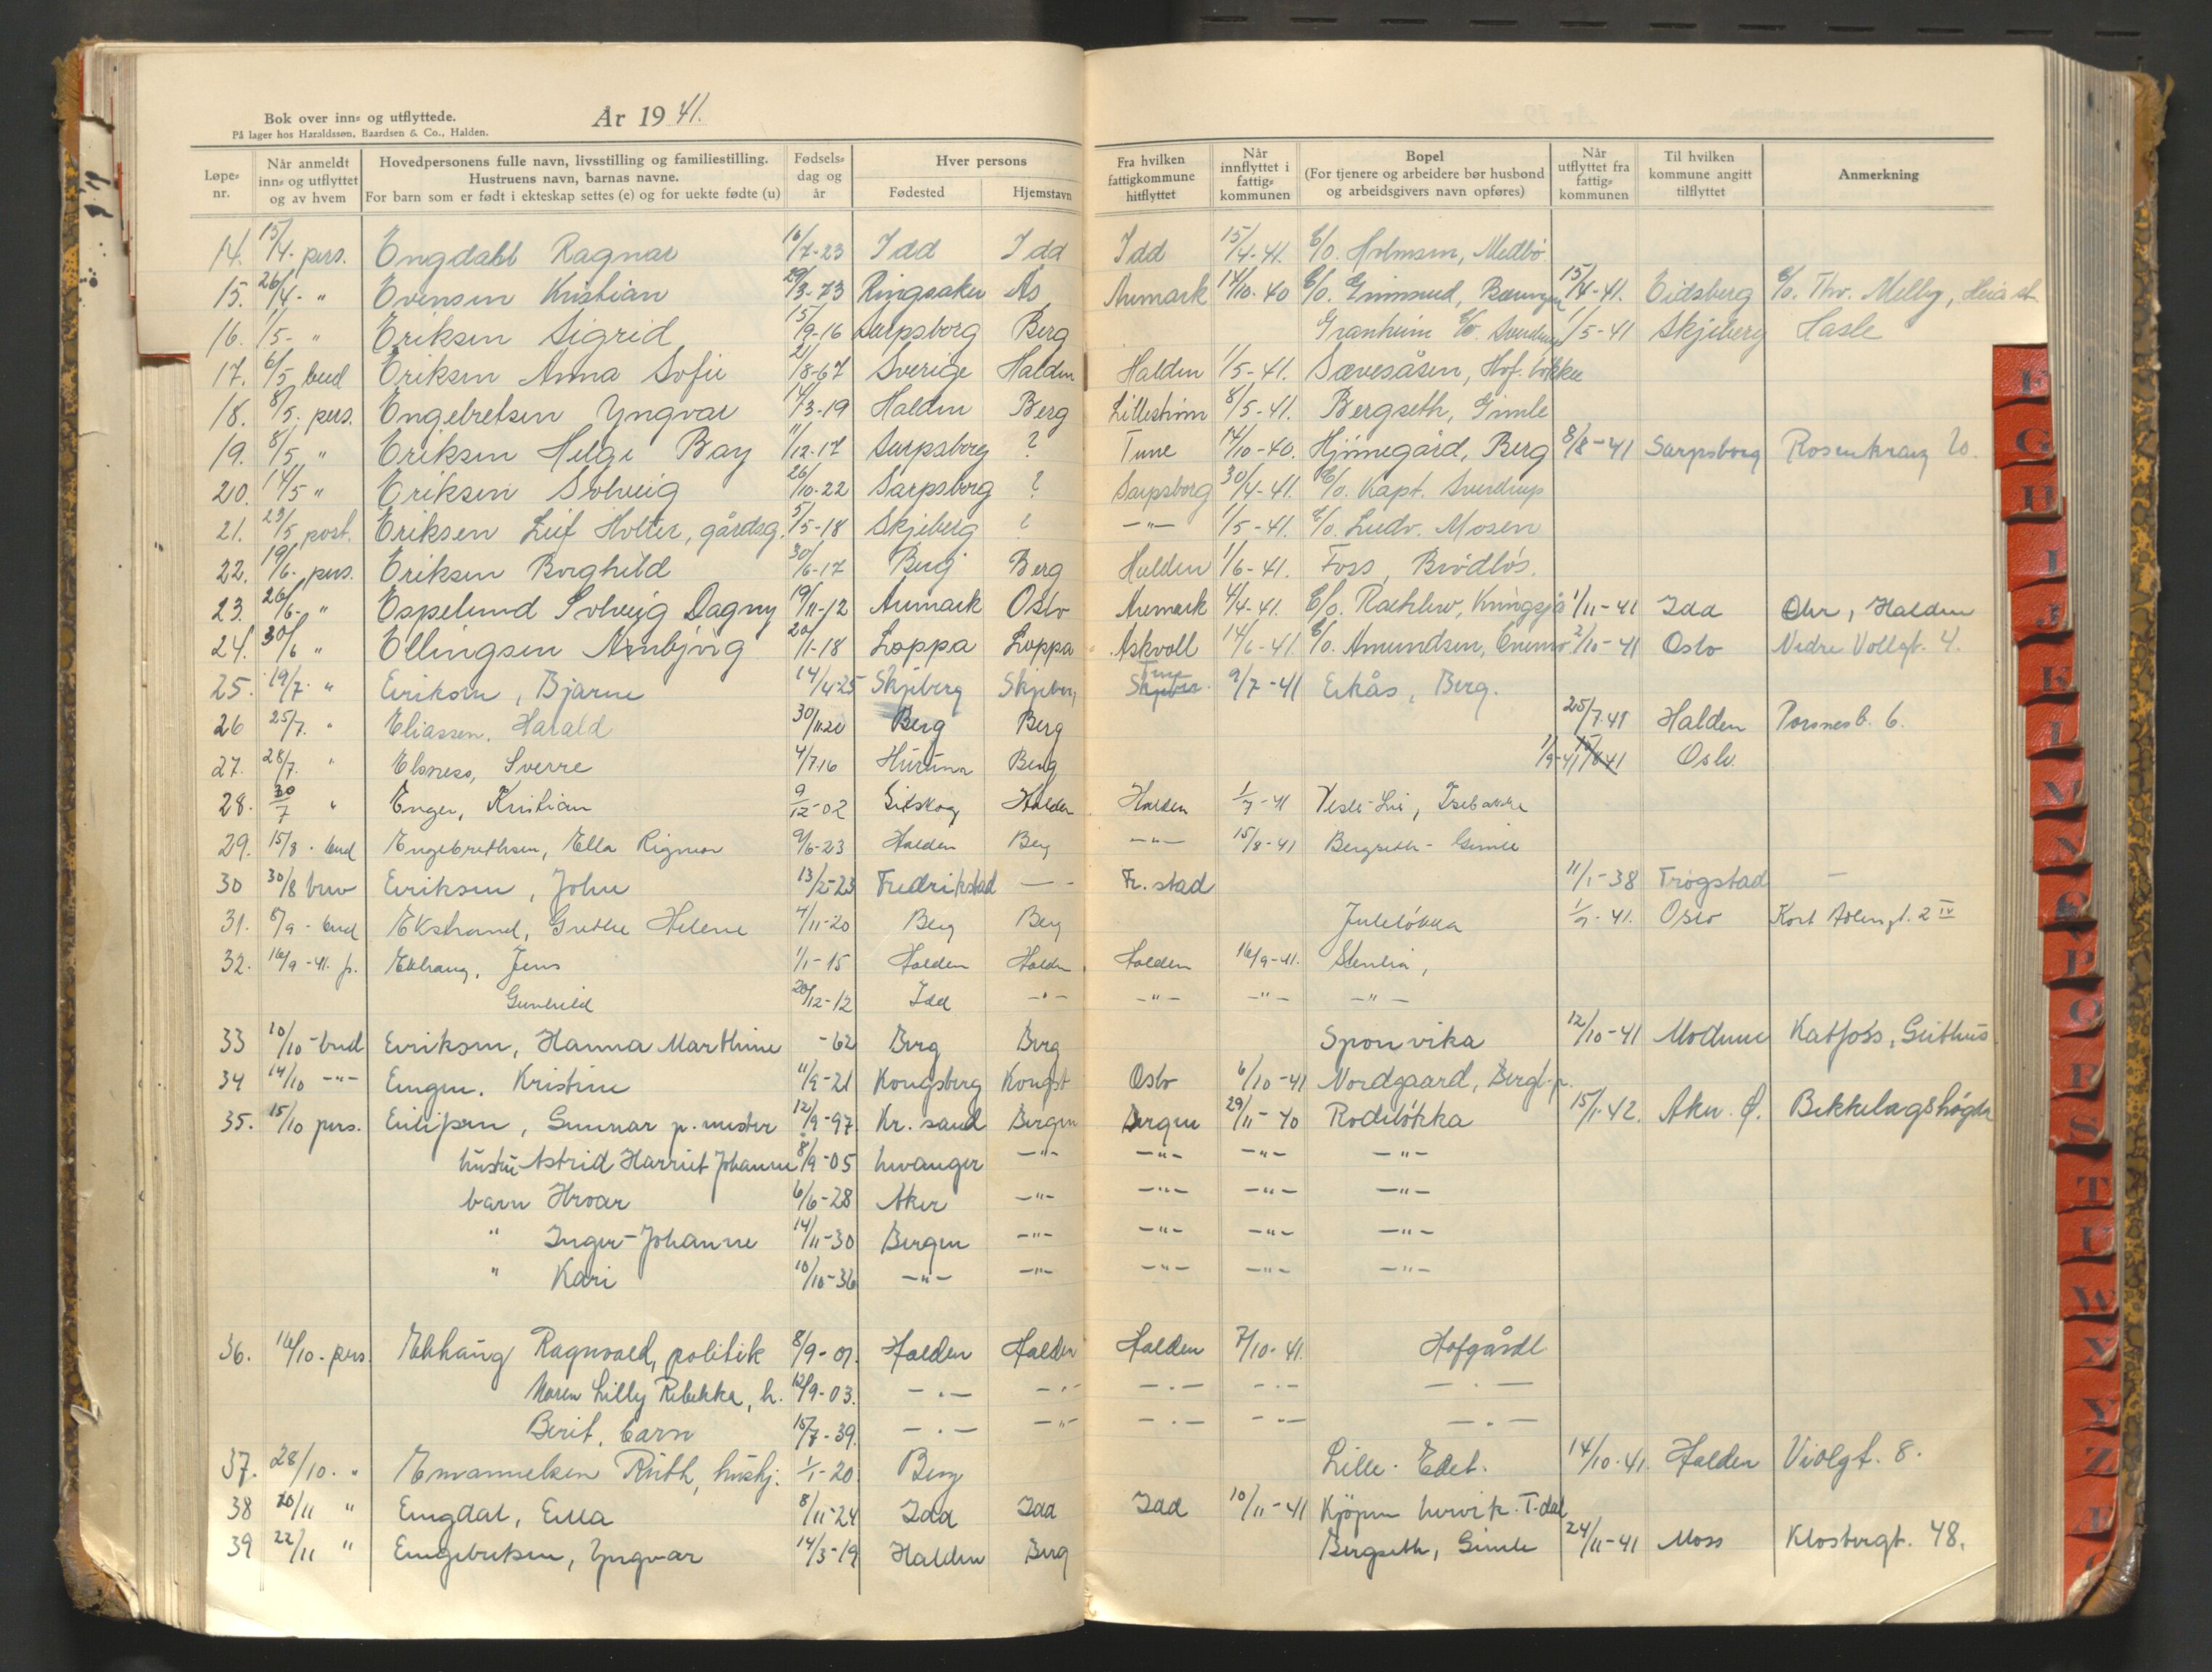 Bok over inn- og utflyttede.
På lager hos Haraldssøn, Baardsen & Co., Halden.
År 19 41.
Løpe-nr. | Når anmeldt inn- og utflyttet og av hvem | Hovedpersonens fulle navn, livsstilling og familiestilling. Hustruens navn, barnas navne. For barn som er født i ekteskap settes (e) og for uekte fødte (u) | Fødsels-dag og år | Hver persons Fødested | Hjemstavn | Fra hvilken fattigkommune hitflyttet | Når innflyttet i fattig-kommunen | Bopel (For tjenere og arbeidere bør husbond og arbeidsgivers navn opføres) | Når utflyttet fra fattig-kommunen | Til hvilken kommune angitt tilflyttet | Anmerkning
14. 15/4. pers. Engdahl Ragnar 16/7-23 Idd Idd Idd 15/4-41. c/o. Holmsen, Medbø
15. 26/4- " Evensen Kristian 29/3-73 Ringsaker Ås Aremark 14/10-40 c/o. Grimsrud, 15/4-41. Eidsberg c/o. Thv. Melby, Heia st.
16. 1/5- " Eriksen Sigrid 15/9-16 Sarpsborg Berg Granheim c/o. Sverdrup 1/5-41 Skjeberg Hasle
17. 6/5 bud Eriksen Anna Sofie 21/8-67 Sverige Halden Halden 1/5-41. Sævesåsen, Hof. løkke
18. 8/5. pers. Engebretsen Yngvar 14/3-19 Halden Berg Lillestrøm 8/5-41. Bergseth, Gimle
19. 8/5 " Eriksen Helge Bay 11/12-17 Sarpsborg ? Tune 14/10-40. Hjørnegård, Berg 8/8-41 Sarpsborg Rosenkranz 20.
20. 14/5 " Eriksen Solveig 26/10-22 Sarpsborg ? Sarpsborg 30/4-41. c/o. Kapt. Sverdrup
21. 23/5 post. Eriksen Leif Holter, gårdsg. 5/5-18 Skjeberg ? -"- 1/5-41. c/o. Ludv. Mosen
22. 19/6. pers. Eriksen Borghild 30/6-17 Berg Berg Halden 1/6-41. Foss, Brødløs.
23. 26/6- " Espelund Solveig Dagny 19/11-12 Aremark Oslo Aremark 4/4-41. c/o. 1/11-41 Idd Ohr, Halden
24. 30/6 " Ellingsen Arnbjørg 20/1-18 Loppa Loppa Askvoll 14/6-41. c/o. Amundsen, 2/10-41 Oslo Nedre Vollgt. 4.
25. 19/7. " Eriksen, Bjarne 14/4-25 Skjeberg Skjeberg Tune 9/7-41 Eikås, Berg.
26 25/7. " Eliassen, Harald 30/11.20 Berg Berg 25/7.41 Halden Porsnesb. 6.
27. 28/7. " Elsness, Sverre 4/7.16 Hurum Berg 1/9-41 Oslo.
28. 30/7 " Enger, Kristian 9/12-02 Halden Halden 1/7-41 Vesle-Lie, Isebakke
29. 15/8. bud Engebrethsen, Ella Rigmor 9/6-23 Halden Berg -"- 15/8-41 Bergseth - Gimle
30 30/8 brev Eriksen, John 13/2-23 Fredrikstad -- Fr.stad 11/1-38 Trøgstad -
31. 8/9 - bud Ekstrand, Grethe Helene 4/11-20 Berg Berg Juleløkka 1/9-41. Oslo Kort Adlersgt. 2 IV
32. 16/9-41. p. Ekhaug, Jens 1/1-15 Halden Halden Halden 16/9-41. Stenlia,
Gunhild 20/12-12 Idd -"- -"- -"- -"-
33 10/10-bud Eriksen, Hanna Marthine -62 Berg Berg Sponvika 12/10-41 Modum Katfoss, Geithus
34 14/10 -"- Engen. Kristine 11/9-21 Kongsberg Kongsb. Oslo 6/10-41 Nordgaard, Berg
35. 15/10 pers. Eilifsen, Gunnar p. mester 12/9-97 Kr. sand Bergen Bergen 29/11-40 Rødeløkka 15/1-42. Aker. Ø. Bekkelagshøgda
hustru Astrid Harriet Johanne 8/9-05 Levanger -"- -"- -"- -"-
barn Hroar 6/6-28 Aker -"- -"- -"- -"-
" Inger-Johanne 14/11-30 Bergen -"- -"- -"- -"-
" Kari 10/10-36 -"- -"- -"- -"- -"-
36. 16/10. pers. Ekhaug Ragnvald, politik 8/9-01. Halden Halden Halden 7/10-41. Hofgårdl.
Maren Lilly Rebekka, h. 12/9-03. -"- -"- -"- -"- -"-
Berit, barn 15/7-39. -"- -"- -"- -"- -"-
37. 28/10. " Emanuelsen Ruth, hushj. 1/1-20 Berg Lille-Edet. 14/10-41. Halden Violgt. 8.
38 20/11 " Engdal, Ella 8/11-24 Idd Idd Idd 10/11-41 T-dal
39 22/11 " Engebretsen, Yngvar 14/3-19 Halden Berg Bergseth, Gimle 24/11-41 Moss Klosbergt. 48.
E
G
H
I
J
K
L
M
N
O
P
Q
R
S
T
U
W
X
Y
Z